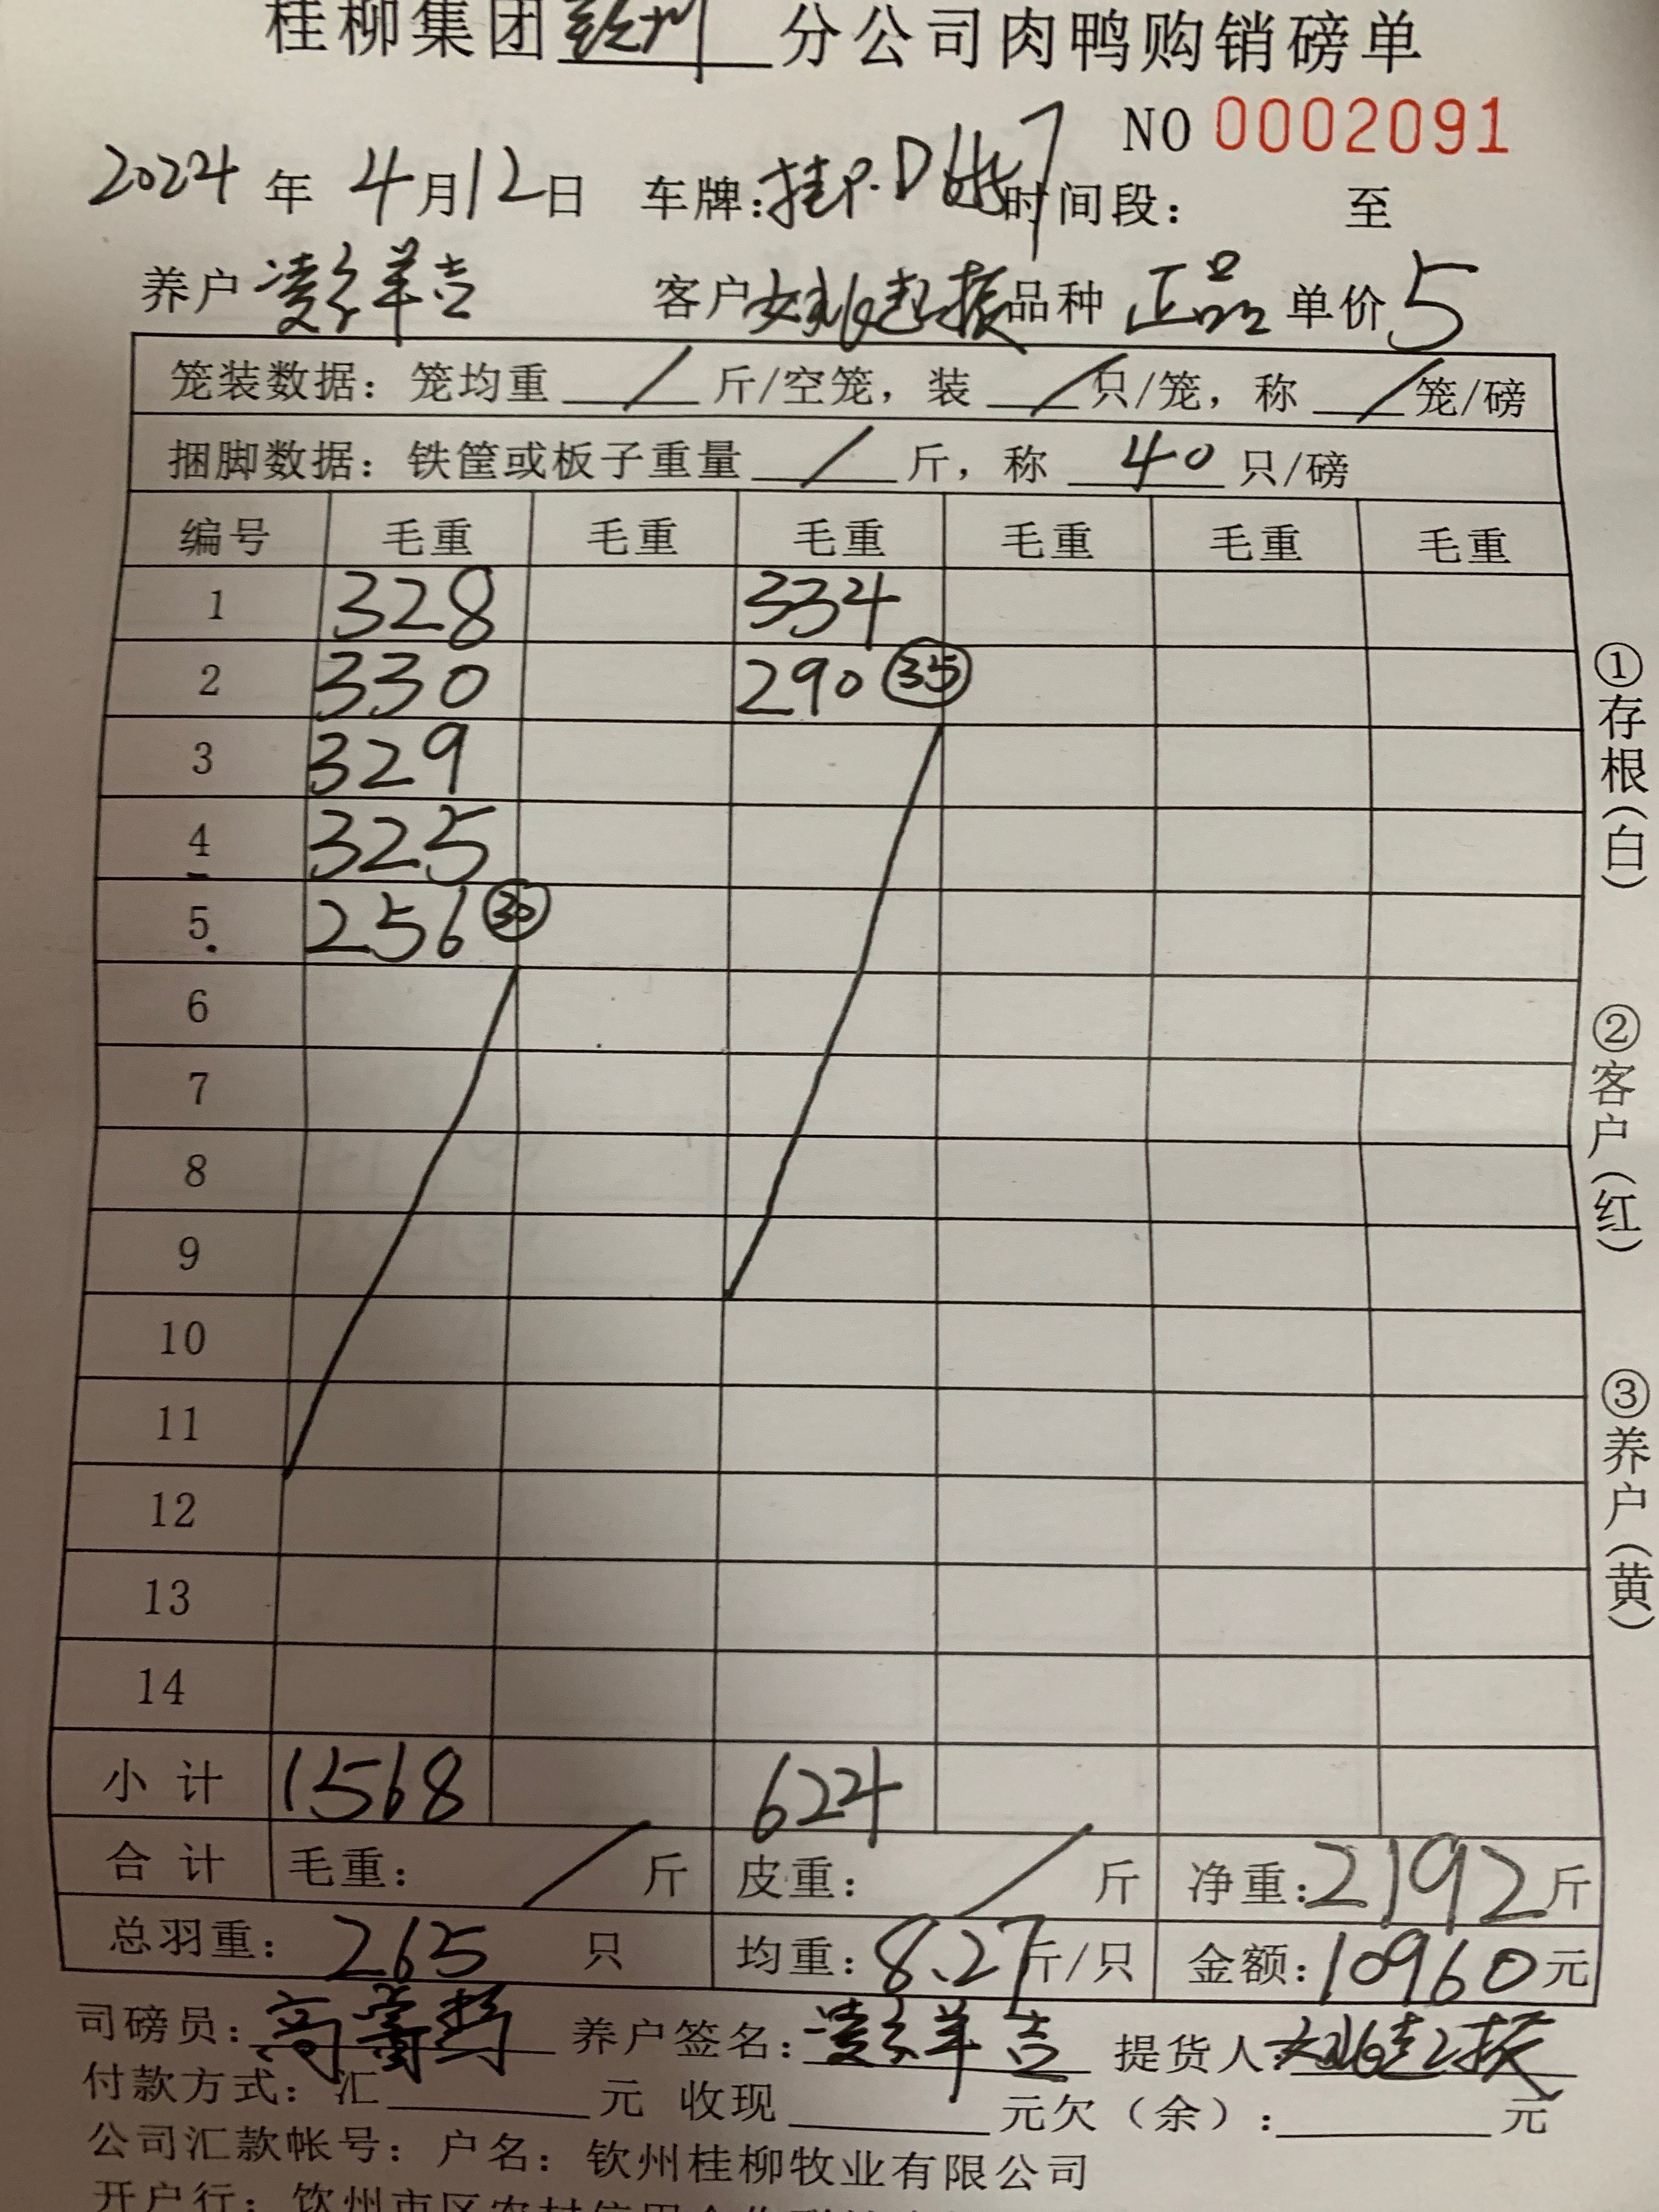 桂柳集团钦州分公司肉鸭购销磅单
NO 0002091
2024年4月12日 车牌:桂P·D 7 时间段: 至
养户 凌 羊吉 客户 姚起振 品种 正品 单价 5
笼装数据: 笼均重 / 斤/空笼, 装 / 只/笼, 称 / 笼/磅
捆脚数据: 铁筐或板子重量 / 斤, 称 40 只/磅
编号 毛重 毛重 毛重 毛重 毛重 毛重
1 328 334
2 330 290 35
3 329
4 325
5 256 30
6
7
8
9
10
11
12
13
14
小计 1568 624
合计 毛重: / 斤 皮重: / 斤 净重: 2192 斤
总羽重: 265 只 均重: 8.27 斤/只 金额: 10960 元
司磅员: 高 养户签名: 凌 羊吉 提货人: 姚起振
付款方式: 汇 元 收现 元欠(余): 元
公司汇款帐号: 户名: 钦州桂柳牧业有限公司
开户行: 钦州市区农村信用合作
①存根(白)
②客户(红)
③养户(黄)